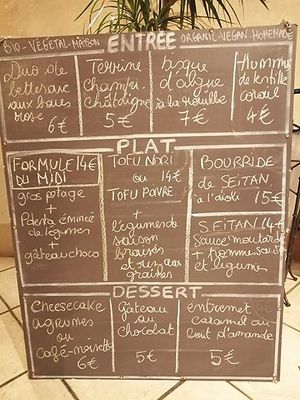 BIO - VÉGÉTAL - MAISON ENTRÉE ORGANIC - VEGAN - HOMEMADE
Duo de
betterave
aux baies
rose
6€
Terrine
Champi.
châtaigne
5€
bisque
d'algue
à la rouille
7€
Hummus
de lentille
corail
4€
PLAT
FORMULE 14€
DU MIDI
gros potage
+
Polenta émincé
de légumes
+
gâteau choco
TOFU NORI
ou 14€
TOFU POIVRE
+
légumes de
saison
braisés
et riz aux
graines
BOURRIDE
de SEITAN
à l'aïoli 15€
SEITAN 14€
Sauce moutarde
+ pomme sautée
et légume
DESSERT
Cheesecake
agrumes
ou
Café-noisette
6€
Gâteau
au
chocolat
5€
entremet
caramel au
lait d'amande
5€